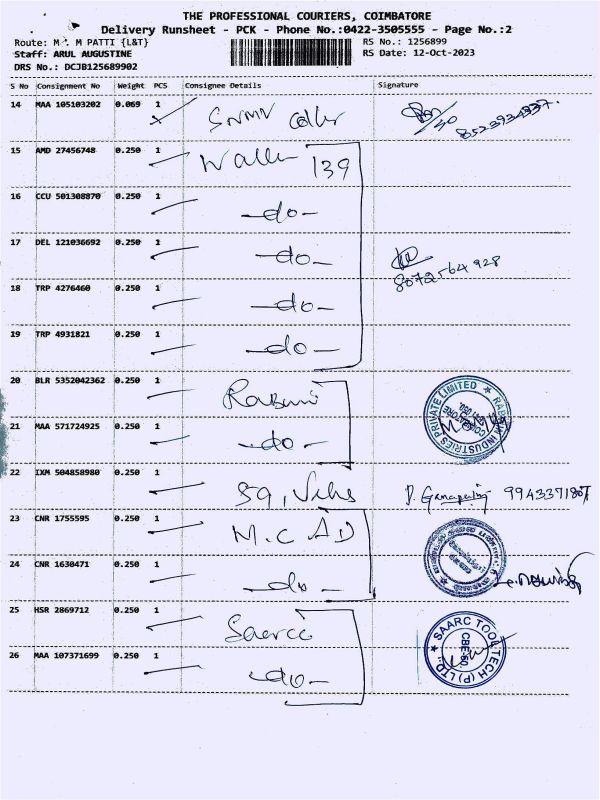 THE PROFESSIONAL COURIERS, COIMBATORE
Delivery Runsheet - PCK - Phone No.:0422-3505555 - Page No.:2
Route: M . M PATTI {L&T}
RS No.: 1256899
Staff: ARUL AUGUSTINE
RS Date: 12-Oct-2023
DRS No.: DCJB125689902
S No Consignment No Weight PCS Consignee Details Signature
14 MAA 105103202 0.069 1
15 AMD 27456748 0.250 1 139
16 CCU 501308870 0.250 1 -do-
17 DEL 121036692 0.250 1 -do-
8072564928
18 TRP 4276460 0.250 1 -do-
19 TRP 4931821 0.250 1 -do-
20 BLR 5352042362 0.250 1
21 MAA 571724925 0.250 1 -do-
22 IXM 504858980 0.250 1
23 CNR 1755595 0.250 1 M.C AD
24 CNR 1630471 0.250 1 -do-
25 HSR 2869712 0.250 1
SAARC TOOLTECH (P) LTD.
CBE-50.
26 MAA 107371699 0.250 1 -do-